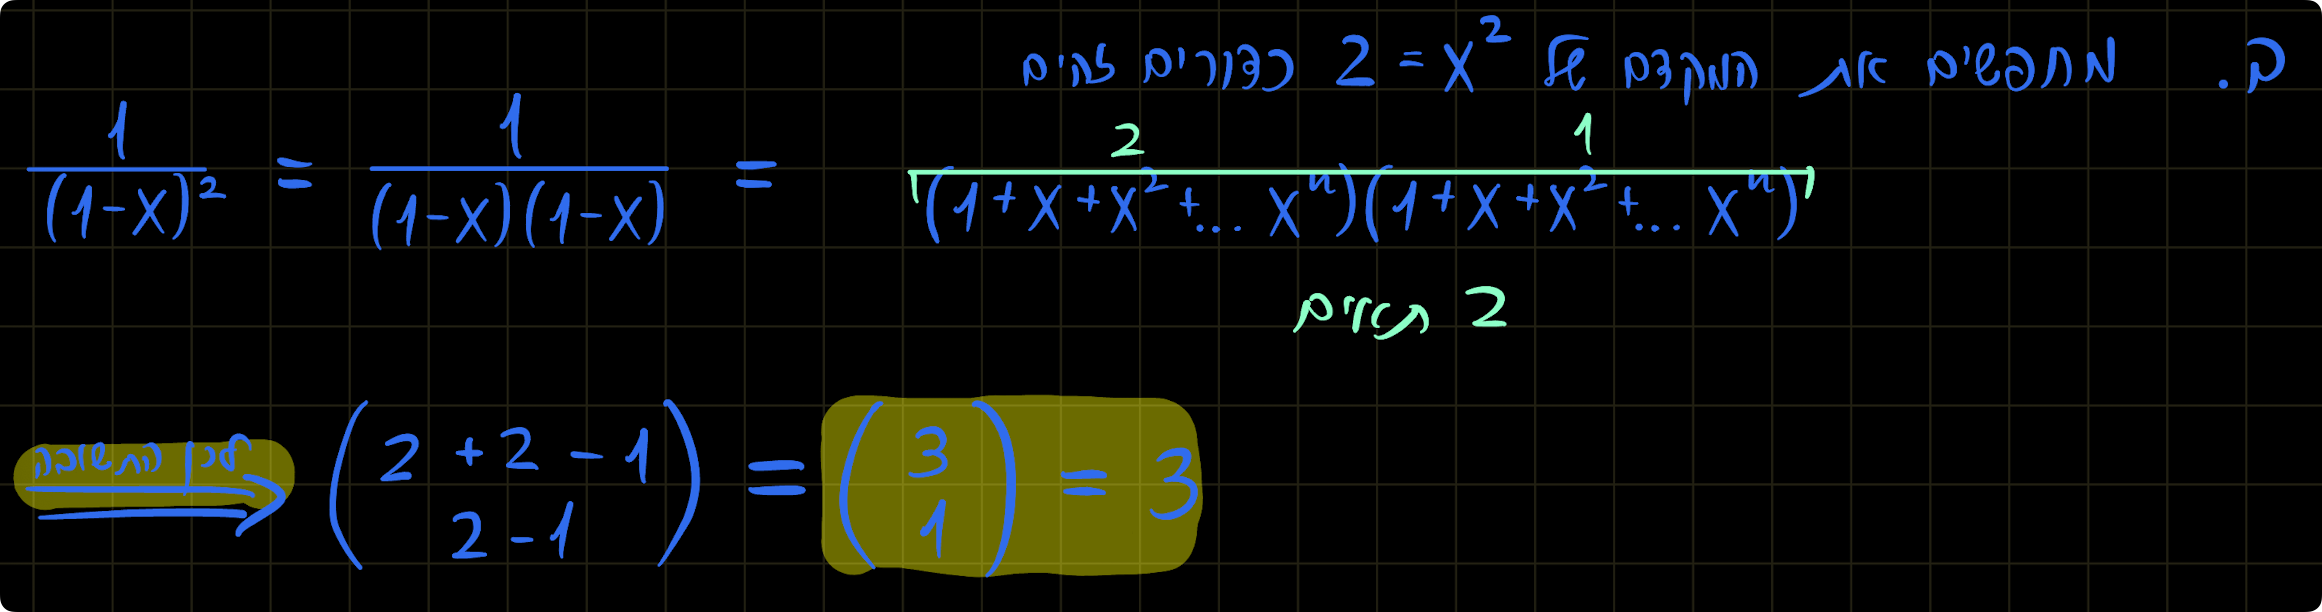 ב. מחפשים את המקדם של x² = 2 כדורים זהים
1/(1-x)² = 1/((1-x)(1-x)) = (1+x+x²+... xⁿ)(1+x+x²+... xⁿ)
2 1
2 תאים
לכן התשובה (2+2-1 / 2-1) = (3 / 1) = 3